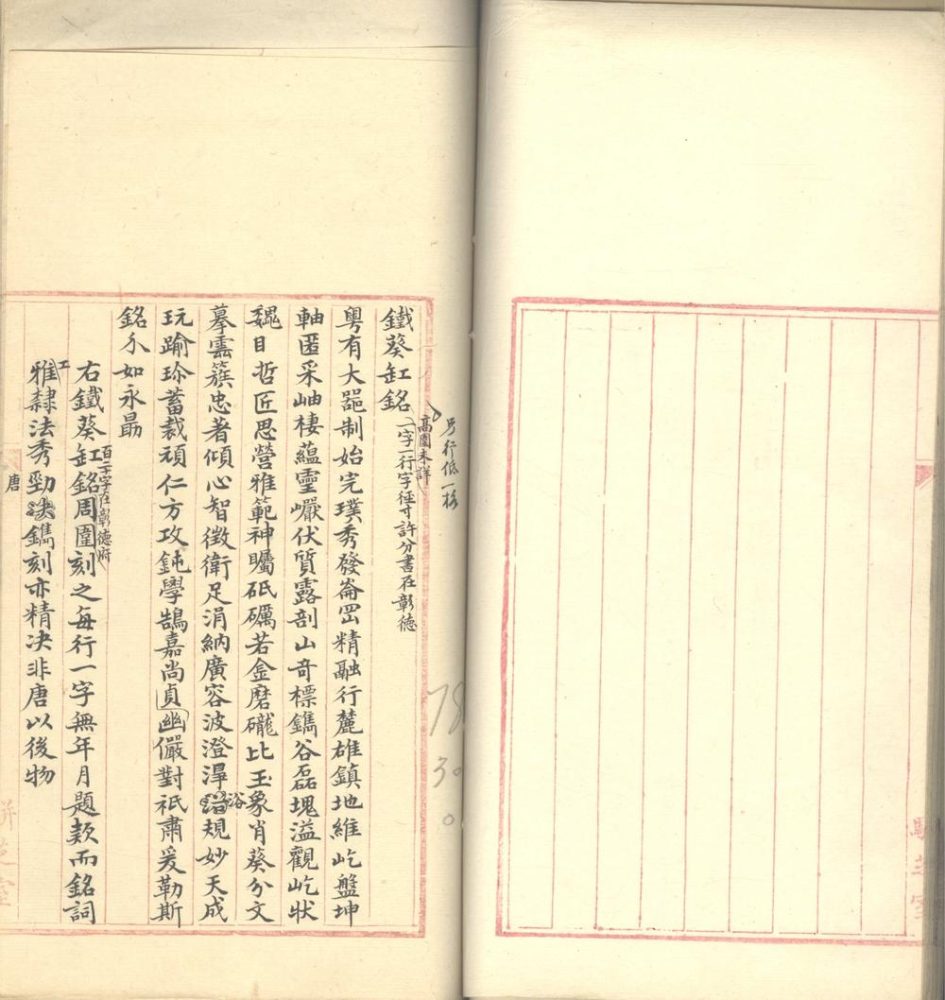 鐵葵缸銘
另行低一格
高圍未詳
一字一行字徑寸許分書在彰德
粵有大噐制始完璞秀發崙罡精融行麓雄鎮地維屹盤坤
軸匿采岫棲蘊靈巗伏質露剖山奇標鐫谷磊塊溢觀屹狀
魏目哲匠思營雅範神矚砥礪若金磨礲比玉象肖葵分文
摹雲簇忠著傾心智徵衛足涓納廣容波澄澤浴規妙天成
玩踰珍蓄裁頑仁方攻鈍學鵠嘉尚貞幽儼對祇肅爰勒斯
銘尒如永勗
右鐵葵缸銘周圍刻之每行一字無年月題款而銘詞
百二字在彰德府
工雅隸法秀勁鐫刻亦精决非唐以後物
唐
78
30